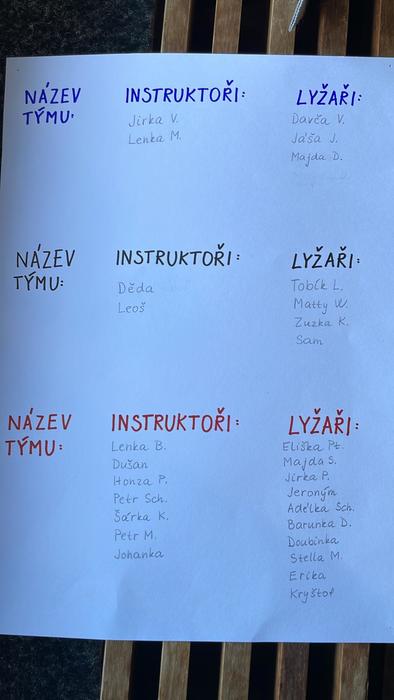 NÁZEV TÝMU:
INSTRUKTOŘI:
Jirka V.
Lenka M.
LYŽAŘI:
Davča V.
Jáša J.
Majda D.
NÁZEV TÝMU:
INSTRUKTOŘI:
Děda
Leoš
LYŽAŘI:
Tobík L.
Matty W.
Zuzka K.
Sam
NÁZEV TÝMU:
INSTRUKTOŘI:
Lenka B.
Dušan
Honza P.
Petr Sch.
Šárka K.
Petr M.
Johanka
LYŽAŘI:
Eliška Pt.
Majda S.
Jirka P.
Jeroným
Adélka Sch.
Barunka D.
Doubinka
Stella M.
Erika
Kryštof